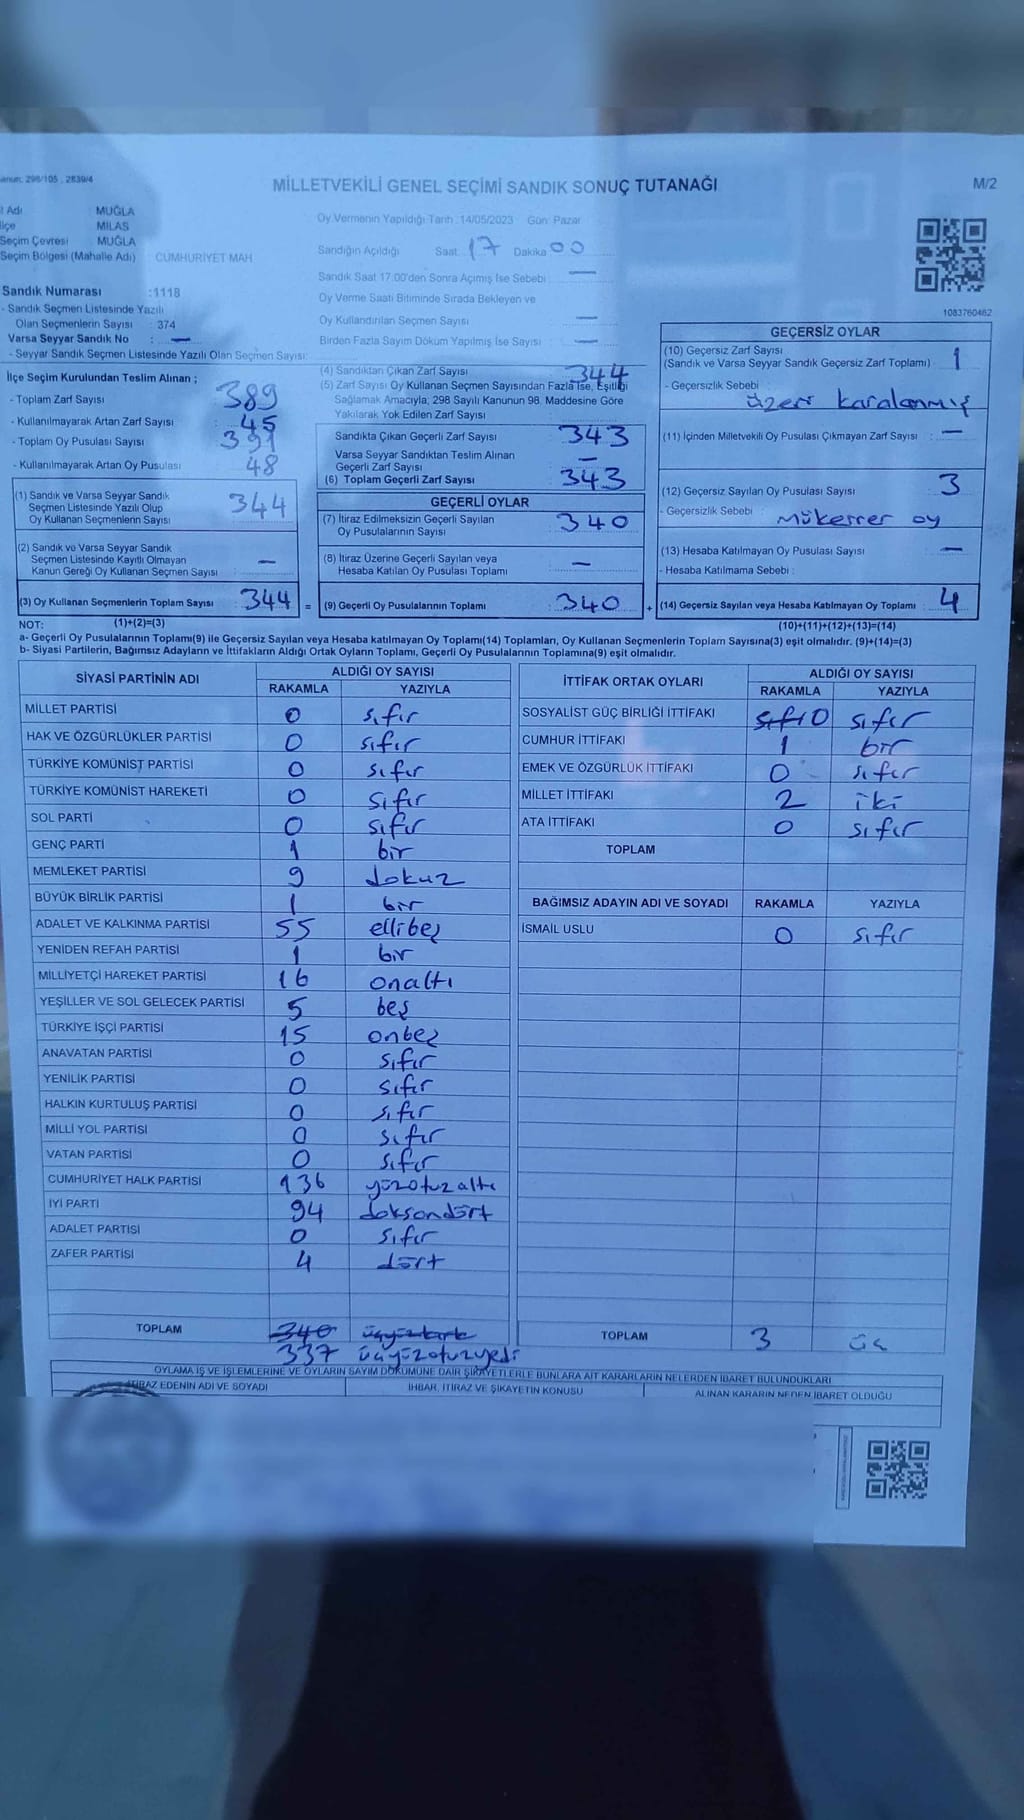 MİLLETVEKİLİ GENEL SEÇİMİ SANDIK SONUÇ TUTANAĞI
M/2
298/105 , 2839/4
Adı : MUĞLA
: MİLAS
Seçim Çevresi : MUĞLA
Seçim Bölgesi (Mahalle Adı) : CUMHURİYET MAH
Sandık Numarası :1118
- Sandık Seçmen Listesinde Yazılı
Olan Seçmenlerin Sayısı : 374
Varsa Seyyar Sandık No : —
- Seyyar Sandık Seçmen Listesinde Yazılı Olan Seçmen Sayısı:
Oy Vermenin Yapıldığı Tarih :14/05/2023 Gün: Pazar
Sandığın Açıldığı Saat: 17 Dakika 00
Sandık Saat 17:00'den Sonra Açımış İse Sebebi : —
Oy Verme Saati Bitiminde Sırada Bekleyen ve
Oy Kullandırılan Seçmen Sayısı : —
Birden Fazla Sayım Döküm Yapılmış İse Sayısı : —
1083760462
İlçe Seçim Kurulundan Teslim Alınan ;
- Toplam Zarf Sayısı : 389
- Kullanılmayarak Artan Zarf Sayısı : 45
- Toplam Oy Pusulası Sayısı : 391
- Kullanılmayarak Artan Oy Pusulası : 48
(1) Sandık ve Varsa Seyyar Sandık
Seçmen Listesinde Yazılı Olup
Oy Kullanan Seçmenlerin Sayısı : 344
(2) Sandık ve Varsa Seyyar Sandık
Seçmen Listesinde Kayıtlı Olmayan
Kanun Gereği Oy Kullanan Seçmen Sayısı : —
(3) Oy Kullanan Seçmenlerin Toplam Sayısı : 344 =
(4) Sandıktan Çıkan Zarf Sayısı : 344
(5) Zarf Sayısı Oy Kullanan Seçmen Sayısından Fazla İse, Eşitliği
Sağlamak Amacıyla; 298 Sayılı Kanunun 98. Maddesine Göre
Yakılarak Yok Edilen Zarf Sayısı :
Sandıkta Çıkan Geçerli Zarf Sayısı : 343
Varsa Seyyar Sandıktan Teslim Alınan
Geçerli Zarf Sayısı : —
(6) Toplam Geçerli Zarf Sayısı : 343
GEÇERLİ OYLAR
(7) İtiraz Edilmeksizin Geçerli Sayılan
Oy Pusulalarının Sayısı : 340
(8) İtiraz Üzerine Geçerli Sayılan veya
Hesaba Katılan Oy Pusulası Toplamı : —
(9) Geçerli Oy Pusulalarının Toplamı : 340 +
GEÇERSİZ OYLAR
(10) Geçersiz Zarf Sayısı
(Sandık ve Varsa Seyyar Sandık Geçersiz Zarf Toplamı) : 1
- Geçersizlik Sebebi : üzeri karalanmış
(11) İçinden Milletvekili Oy Pusulası Çıkmayan Zarf Sayısı : —
(12) Geçersiz Sayılan Oy Pusulası Sayısı : 3
- Geçersizlik Sebebi : Mükerrer oy
(13) Hesaba Katılmayan Oy Pusulası Sayısı : —
- Hesaba Katılmama Sebebi :
(14) Geçersiz Sayılan veya Hesaba Katılmayan Oy Toplamı : 4
NOT: (1)+(2)=(3) (10)+(11)+(12)+(13)=(14)
a- Geçerli Oy Pusulalarının Toplamı(9) ile Geçersiz Sayılan veya Hesaba katılmayan Oy Toplamı(14) Toplamları, Oy Kullanan Seçmenlerin Toplam Sayısına(3) eşit olmalıdır. (9)+(14)=(3)
b- Siyasi Partilerin, Bağımsız Adayların ve İttifakların Aldığı Ortak Oyların Toplamı, Geçerli Oy Pusulalarının Toplamına(9) eşit olmalıdır.
SİYASİ PARTİNİN ADI ALDIĞI OY SAYISI
RAKAMLA YAZIYLA
MİLLET PARTİSİ 0 sıfır
HAK VE ÖZGÜRLÜKLER PARTİSİ 0 sıfır
TÜRKİYE KOMÜNİST PARTİSİ 0 sıfır
TÜRKİYE KOMÜNİST HAREKETİ 0 sıfır
SOL PARTİ 0 sıfır
GENÇ PARTİ 1 bir
MEMLEKET PARTİSİ 9 dokuz
BÜYÜK BİRLİK PARTİSİ 1 bir
ADALET VE KALKINMA PARTİSİ 55 ellibeş
YENİDEN REFAH PARTİSİ 1 bir
MİLLİYETÇİ HAREKET PARTİSİ 16 onaltı
YEŞİLLER VE SOL GELECEK PARTİSİ 5 beş
TÜRKİYE İŞÇİ PARTİSİ 15 onbeş
ANAVATAN PARTİSİ 0 sıfır
YENİLİK PARTİSİ 0 sıfır
HALKIN KURTULUŞ PARTİSİ 0 sıfır
MİLLİ YOL PARTİSİ 0 sıfır
VATAN PARTİSİ 0 sıfır
CUMHURİYET HALK PARTİSİ 136 yüzotuzaltı
İYİ PARTİ 94 doksandört
ADALET PARTİSİ 0 sıfır
ZAFER PARTİSİ 4 dört
TOPLAM 340 üçyüzkırk
337 üçyüzotuzyedi
İTTİFAK ORTAK OYLARI ALDIĞI OY SAYISI
RAKAMLA YAZIYLA
SOSYALİST GÜÇ BİRLİĞİ İTTİFAKI sıfı 0 sıfır
CUMHUR İTTİFAKI 1 bir
EMEK VE ÖZGÜRLÜK İTTİFAKI 0 sıfır
MİLLET İTTİFAKI 2 iki
ATA İTTİFAKI 0 sıfır
TOPLAM
BAĞIMSIZ ADAYIN ADI VE SOYADI RAKAMLA YAZIYLA
İSMAİL USLU 0 sıfır
TOPLAM 3 üç
OYLAMA İŞ VE İŞLEMLERİNE VE OYLARIN SAYIM DÖKÜMÜNE DAİR ŞİKAYETLERLE BUNLARA AİT KARARLARIN NELERDEN İBARET BULUNDUKLARI
İTİRAZ EDENİN ADI VE SOYADI İHBAR, İTİRAZ VE ŞİKAYETİN KONUSU ALINAN KARARIN NEDEN İBARET OLDUĞU